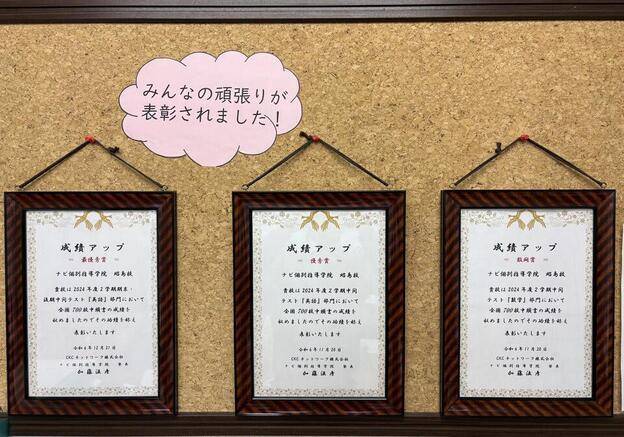 みんなの頑張りが
表彰されました！
成績アップ
最優秀賞
ナビ個別指導学院 昭島校
貴校は2024年度2学期期末・
後期中間テスト『英語』部門において
全国700校中横賞の成績を
収めましたのでその功績を称え
表彰いたします
令和6年12月21日
CKCネットワーク株式会社
ナビ個別指導学院 学長
加藤法彦
成績アップ
優秀賞
ナビ個別指導学院 昭島校
貴校は2024年度2学期中間
テスト『英語』部門において
全国700校中横賞の成績を
収めましたのでその功績を称え
表彰いたします
令和6年11月20日
CKCネットワーク株式会社
ナビ個別指導学院 学長
加藤法彦
成績アップ
敢闘賞
ナビ個別指導学院 昭島校
貴校は2024年度2学期中間
テスト『数学』部門において
全国700校中頭書の成績を
収めましたのでその功績を称え
表彰いたします
令和6年11月20日
CKCネットワーク株式会社
ナビ個別指導学院 学長
加藤法彦